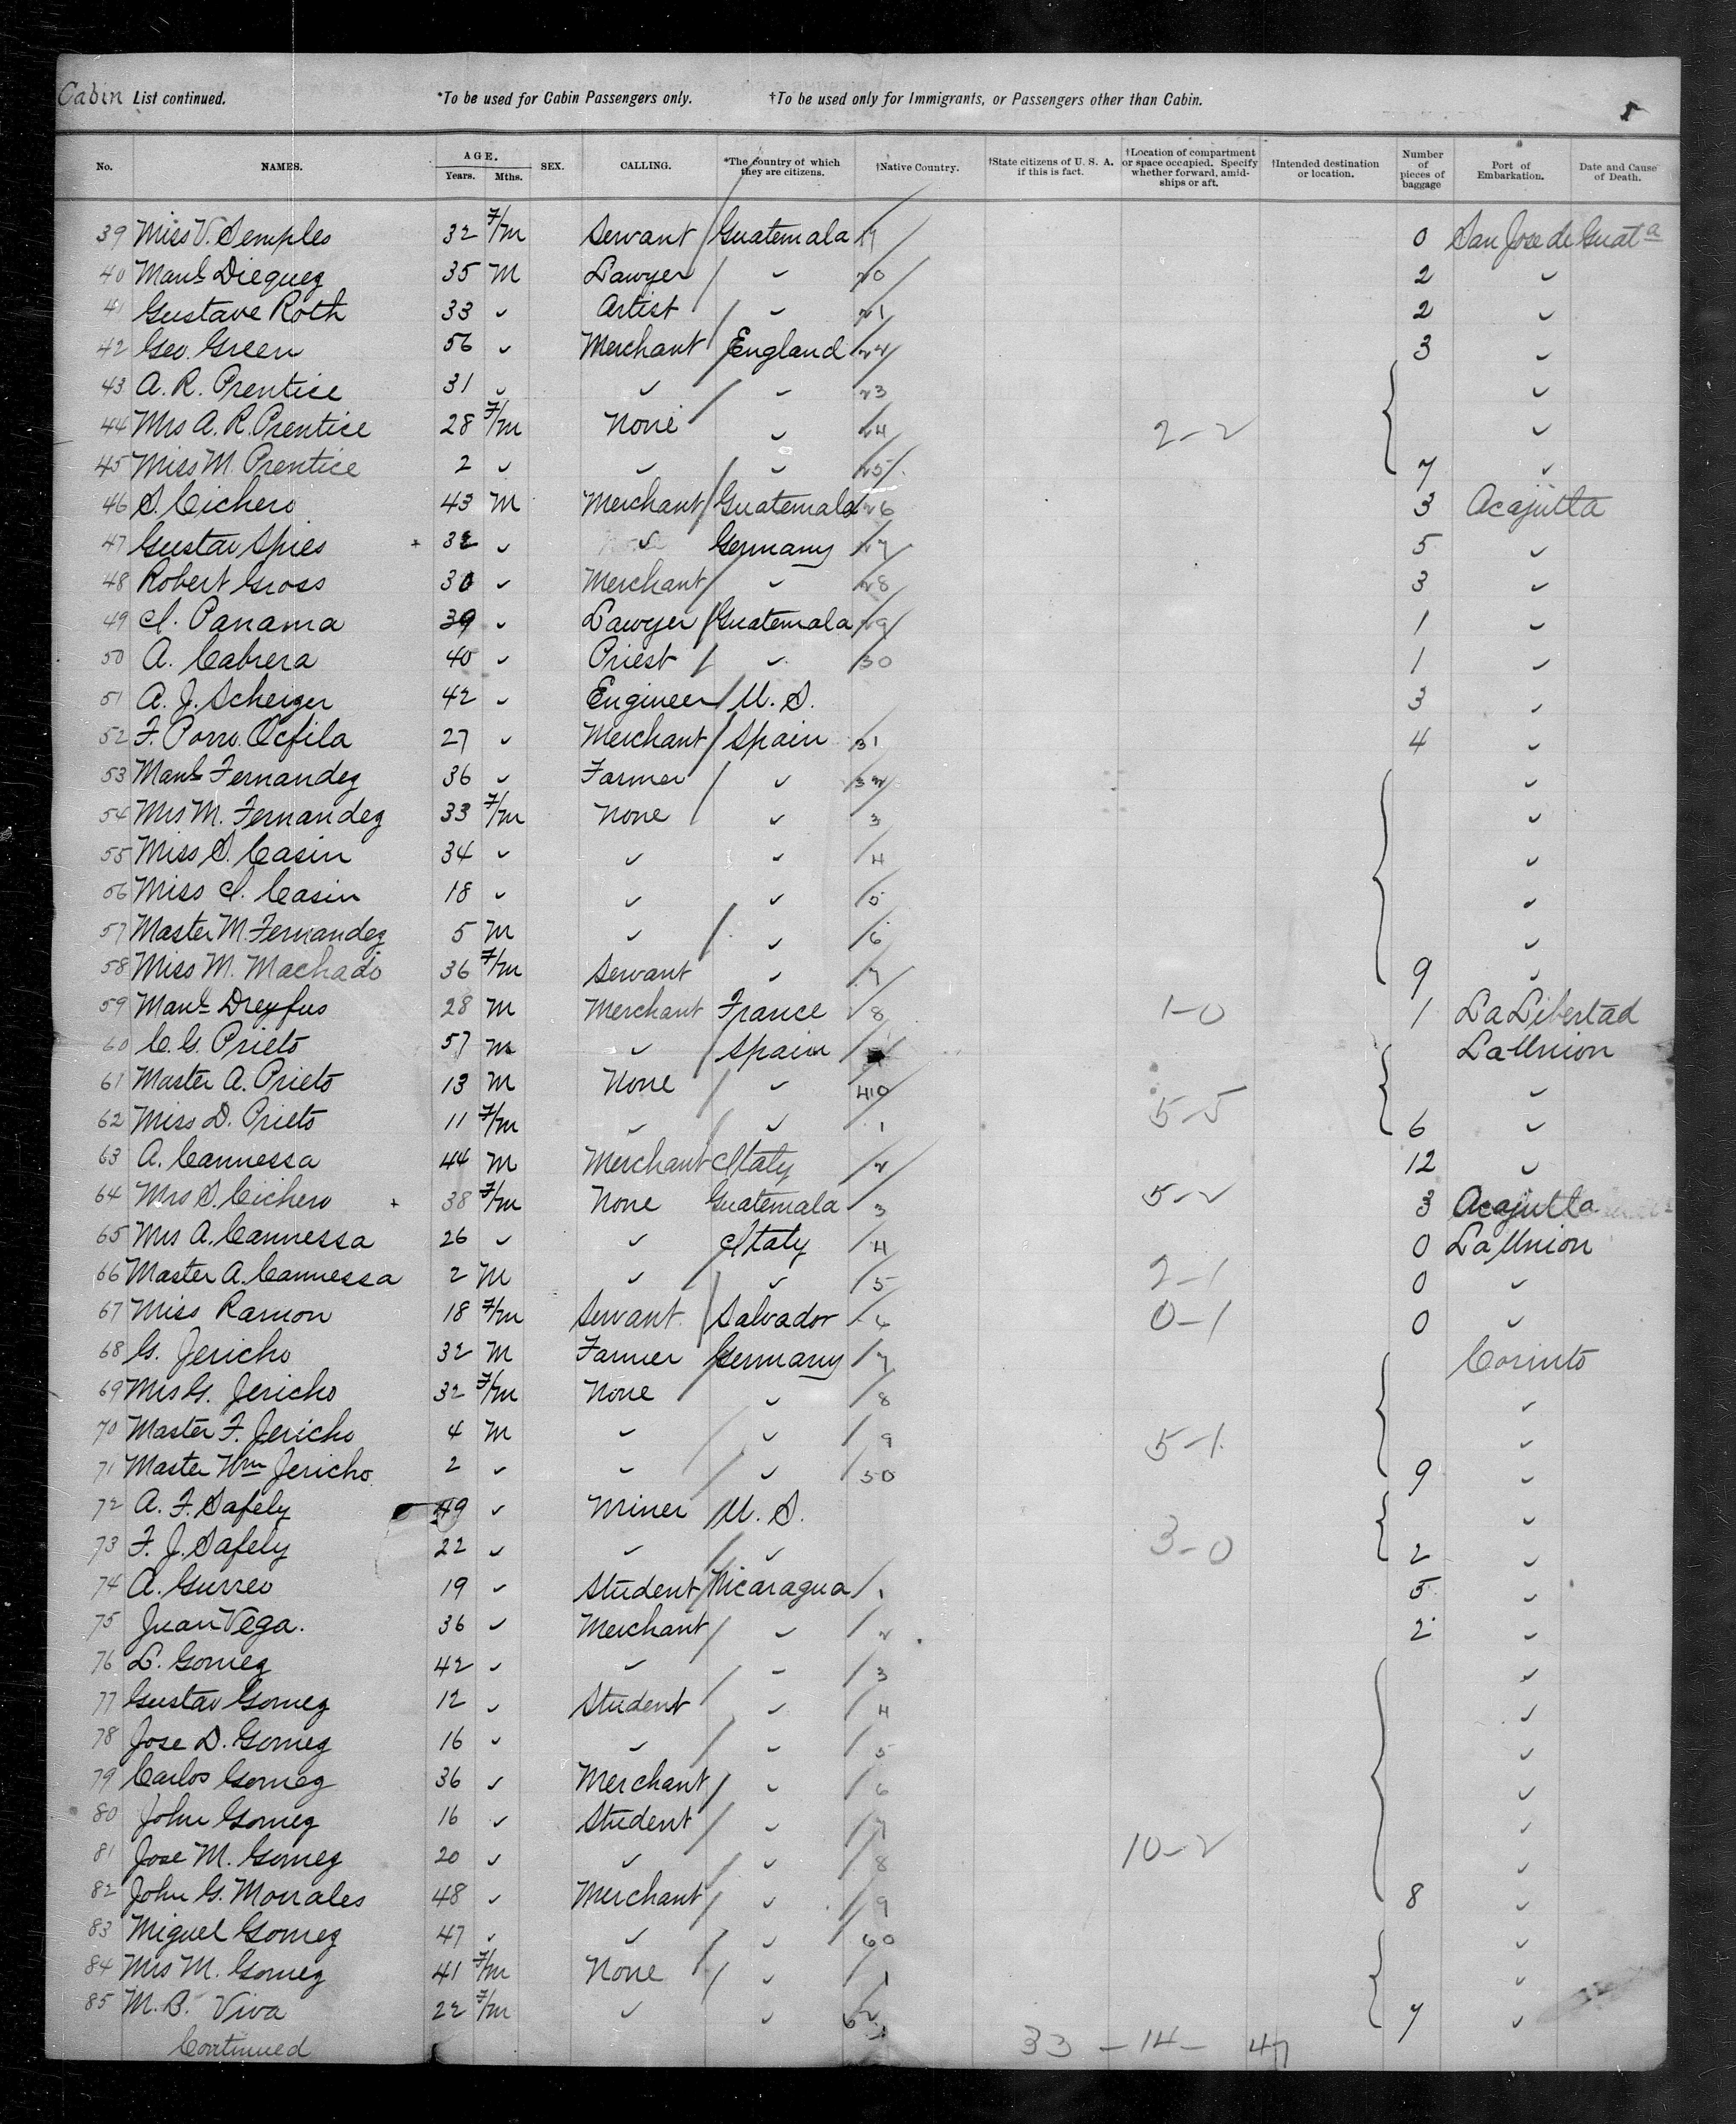 Cabin List continued. *To be used for Cabin Passengers only. †To be used only for Immigrants, or Passengers other than Cabin. 5
No. NAMES. AGE. Years. Mths. SEX. CALLING. *The country of which they are citizens. †Native Country. †State citizens of U. S. A. if this is fact. †Location of compartment or space occupied. Specify whether forward, amidships or aft. †Intended destination or location. Number of pieces of baggage Port of Embarkation. Date and Cause of Death.
39 Miss V. Semples 32 F/m Servant Guatemala 0 San Jose de Guatª
40 Manl Dieguez 35 M Lawyer ✓ 20 2 ✓
41 Gustave Roth 33 ✓ Artist ✓ 21 2 ✓
42 Geo. Green 56 ✓ Merchant England 3 ✓
43 A. R. Prentice 31 ✓ ✓ ✓ 23 ✓
44 Mrs A. R. Prentice 28 F/m None ✓ 24 2-2 ✓
45 Miss M. Prentice 2 ✓ ✓ ✓ 25 7 ✓
46 S. Cichero 43 M Merchant Guatemala 26 3 Acajutla
47 Gustav Spies + 32 ✓ ✓ Germany 27 5 ✓
48 Robert Gross 30 ✓ Merchant ✓ 28 3 ✓
49 I. Panama 39 ✓ Lawyer Guatemala 29 1 ✓
50 A. Cabrera 40 ✓ Priest ✓ 30 1 ✓
51 A. J. Scherzer 42 ✓ Engineer U. S. 3 ✓
52 F. Porro. 27 ✓ Merchant Spain 31 4 ✓
53 Manl Fernandez 36 ✓ Farmer ✓ 32 ✓
54 Mrs M. Fernandez 33 F/m None ✓ 3 ✓
55 Miss S. Casin 34 ✓ ✓ ✓ 4 ✓
56 Miss I. Casin 18 ✓ ✓ ✓ 5 ✓
57 Master M. Fernandez 5 M ✓ ✓ 6 ✓
58 Miss M. Machado 36 F/m Servant ✓ 7 9 ✓
59 Manl Dreyfus 28 M Merchant France 8 1-0 1 La Libertad
60 C. G. Prieto 57 m ✓ Spain La Union
61 Master A. Prieto 13 M None ✓ 40 ✓
62 Miss D. Prieto 11 F/m ✓ ✓ 1 5-5 6 ✓
63 A. Cannessa 44 M Merchant Italy 2 12 ✓
64 Mrs S. Cichero + 38 F/m None Guatemala 3 5-2 3 Acajutla
65 Mrs A. Cannessa 26 ✓ ✓ Italy 4 0 La Union
66 Master A. Cannessa 2 M ✓ ✓ 5 2-1 0 ✓
67 Miss Ramon 18 F/m Servant Salvador 6 0-1 0 ✓
68 G. Jericho 32 M Farmer Germany 7 Corinto
69 Mrs G. Jericho 32 F/m None ✓ 8 ✓
70 Master F. Jericho 4 M ✓ ✓ 9 5-1 ✓
71 Master Wm Jericho 2 ✓ ✓ ✓ 50 9 ✓
72 A. F. Safely 49 ✓ Miner U. S. ✓
73 F. J. Safely 22 ✓ ✓ ✓ 3-0 2 ✓
74 A. Gurreo 19 ✓ Student Nicaragua 1 5 ✓
75 Juan Vega. 36 ✓ Merchant ✓ 2 2 ✓
76 L. Gomez 42 ✓ ✓ ✓ 3 ✓
77 Gustav Gomez 12 ✓ Student ✓ 4 ✓
78 Jose D. Gomez 16 ✓ ✓ ✓ 5 ✓
79 Carlos Gomez 36 ✓ Merchant ✓ 6 ✓
80 John Gomez 16 ✓ Student ✓ 7 ✓
81 Jose M. Gomez 20 ✓ ✓ ✓ 8 10-2 ✓
82 John G. Morrales 48 ✓ Merchant ✓ 9 8 ✓
83 Miguel Gomez 47 ✓ ✓ ✓ 60 ✓
84 Mrs M. Gomez 41 F/m None ✓ 1 ✓
85 M. B. Viva 22 F/m ✓ ✓ 62 7 ✓
Continued 33 - 14 - 47